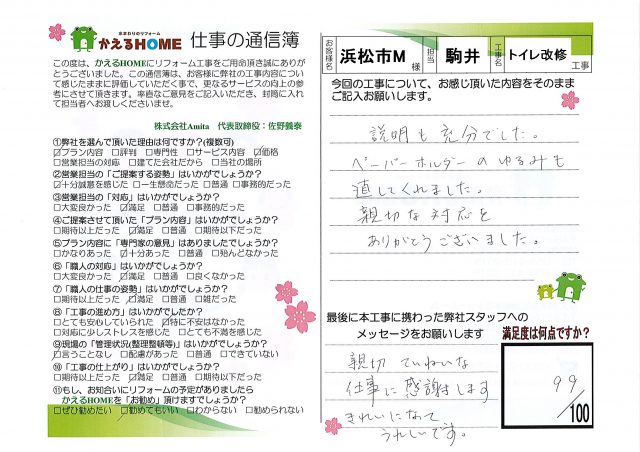 水まわりのリフォーム
かえるHOME
仕事の通信簿
この度は、かえるHOMEにリフォーム工事をご用命頂き誠にありが
とうございました。この通信簿は、お客様に弊社の工事内容につい
て感じたままに評価していただく事で、更なるサービスの向上の参
考にさせて頂きます。率直なご意見をご記入いただき、封筒に入れ
て担当者へお渡しくださいませ。
株式会社Amita 代表取締役：佐野義泰
①弊社を選んで頂いた理由は何ですか?(複数可)
☑プラン内容 □評判 □専門性 □サービス内容 ☑価格
□営業担当の対応 □建てた会社だから □当社の場所
②営業担当の「ご提案する姿勢」はいかがでしょうか?
☑十分誠意を感じた □一生懸命だった □普通 □事務的だった
③営業担当の「対応」はいかがでしょうか?
□大変良かった ☑満足 □普通 □事務的だった
④ご提案させて頂いた「プラン内容」はいかがでしょうか?
□期待以上だった ☑満足 □普通 □期待以下だった
⑤プラン内容に「専門家の意見」はありましたでしょうか?
□かなりあった ☑十分あった □普通 □殆んどなかった
⑥「職人の対応」はいかがでしょうか?
□大変良かった ☑満足 □普通 □良くなかった
⑦「職人の仕事の姿勢」はいかがでしょうか?
□期待以上だった ☑満足 □普通 □雑だった
⑧「工事の進め方」はいかがでしたか?
□とても安心していられた ☑特に不安はなかった
□対応に少しストレスを感じた □とても不満を感じた
⑨現場の「管理状況(整理整頓等)」はいかがでしょうか?
☑言うことなし □配慮があった □普通 □できていない
⑩「工事の仕上がり」はいかがでしょうか?
□期待以上だった ☑満足 □普通 □期待以下だった
⑪もし、お知合いにリフォームの予定がありましたら
かえるHOMEを「お勧め」頂けますでしょうか?
□ぜひ勧めたい ☑勧めてもいい □わからない □勧められない
お客様名 浜松市M 様 担当 駒井 工事名 トイレ改修 工事
今回の工事について、お感じ頂いた内容をそのまま
ご記入お願いします。
説明も充分でした。
ペーパーホルダーのゆるみも
直してくれました。
親切な対応を
ありがとうございました。
最後に本工事に携わった弊社スタッフへの
メッセージをお願いします
親切 ていねいな
仕事に感謝します
きれいになって
うれしいです。
満足度は何点ですか?
99
/100